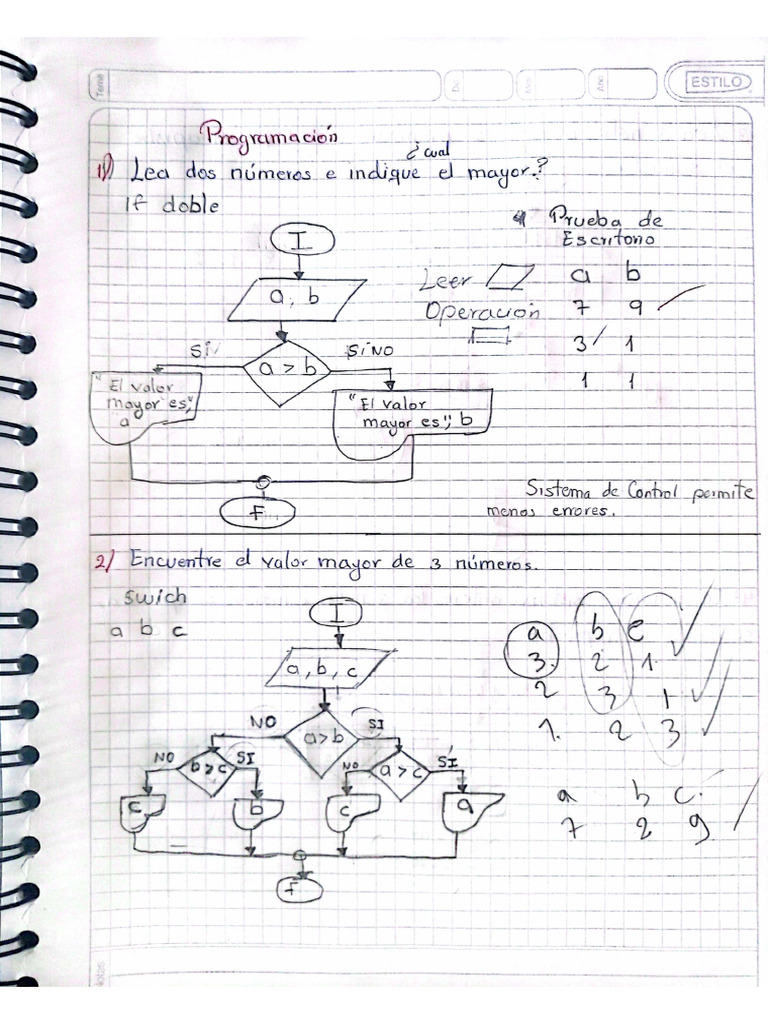 Tema
ESTILO
Programación
¿cual
1) Lea dos números e indique el mayor.?
If doble
I
a, b
SI
SINO
a > b
"El valor
mayor es",
a
"El valor
mayor es", b
F
Prueba de
Escritorio
Leer a b
Operación 7 9
3 1
1 1
Sistema de Control permite
menos errores.
2) Encuentre el valor mayor de 3 números.
swich
a b c
I
a, b, c
NO
SI
a>b
NO
b>c
SI
NO
a>c
SI
c
b
c
a
F
a b c
3. 2 1.
2 3 1
1. 2 3
a b c.
7 2 9
Notas